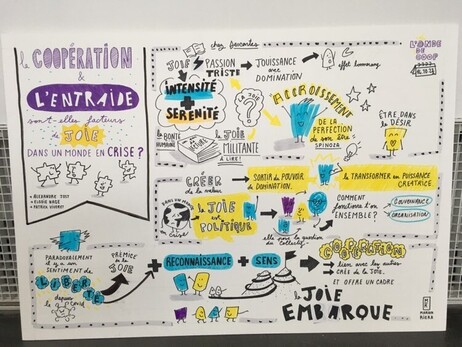 la COOPÉRATION
&
L'ENTRAIDE
sont-elles facteurs
de JOIE
DANS UN MONDE en CRISE ?
chez Descartes
JOIE
PASSION
TRISTE
JOUISSANCE
avec
DOMINATION
effet
INTENSITÉ
+
SERENITÉ
JOIE
?
ACCROISSEMENT
DE LA
PERFECTION
de son être
SPINOZA
ÊTRE DANS
le DÉSIR
L'ONDE
DE COOP
LA BONTÉ
HUMAINE
la JOIE
MILITANTE
À LIRE !
CRÉER
de la valeur
SORTIR DU POUVOIR
DE DOMINATION.
le TRANSFORMER en PUISSANCE
CRÉATRICE.
DANS UN MONDE
la JOIE
est
POLITIQUE
elle pose la question
du collectif.
COMMENT
fonctionne t'on
ENSEMBLE ?
GOUVERNANCE
ORGANISATION
PARADOXALEMENT
il y a un
SENTIMENT DE
LIBERTÉ
depuis
le Covid
PRÉMICE
de la
JOIE
+
RECONNAISSANCE
+
SENS
COOPÉRATION
lien avec les autres
CRÉE DE LA JOIE.
ET OFFRE UN CADRE
la JOIE
EMBARQUE
MARION
RIERA